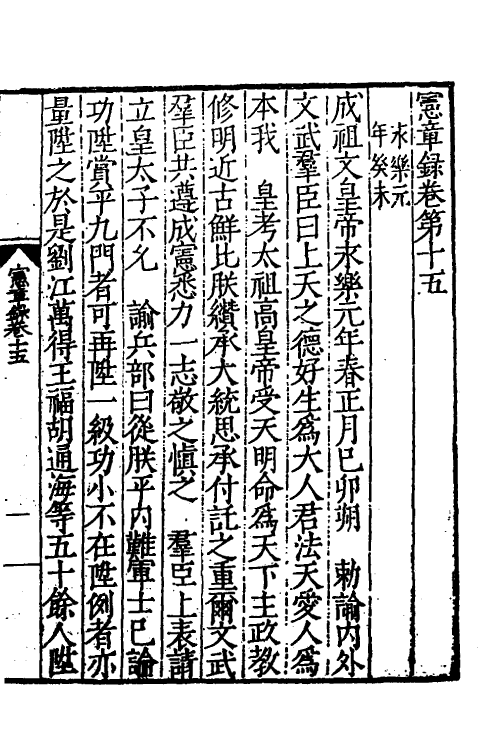 憲章錄卷第十五
永樂元
年癸未
成祖文皇帝永樂元年春正月己卯朔　勑諭內外
文武羣臣曰上天之德好生爲大人君法天愛人爲
本我　皇考太祖高皇帝受天明命爲天下主政教
修明近古鮮比朕纘承大統思承付託之重爾文武
羣臣共遵成憲悉力一志敬之慎之　羣臣上表請
立皇太子不允　諭兵部曰從朕平內難軍士已論
功陞賞平九門者可再陞一級功小不在陞例者亦
量陞之於是劉江萬得王福胡通海等五十餘人陞
憲章錄卷十五
一